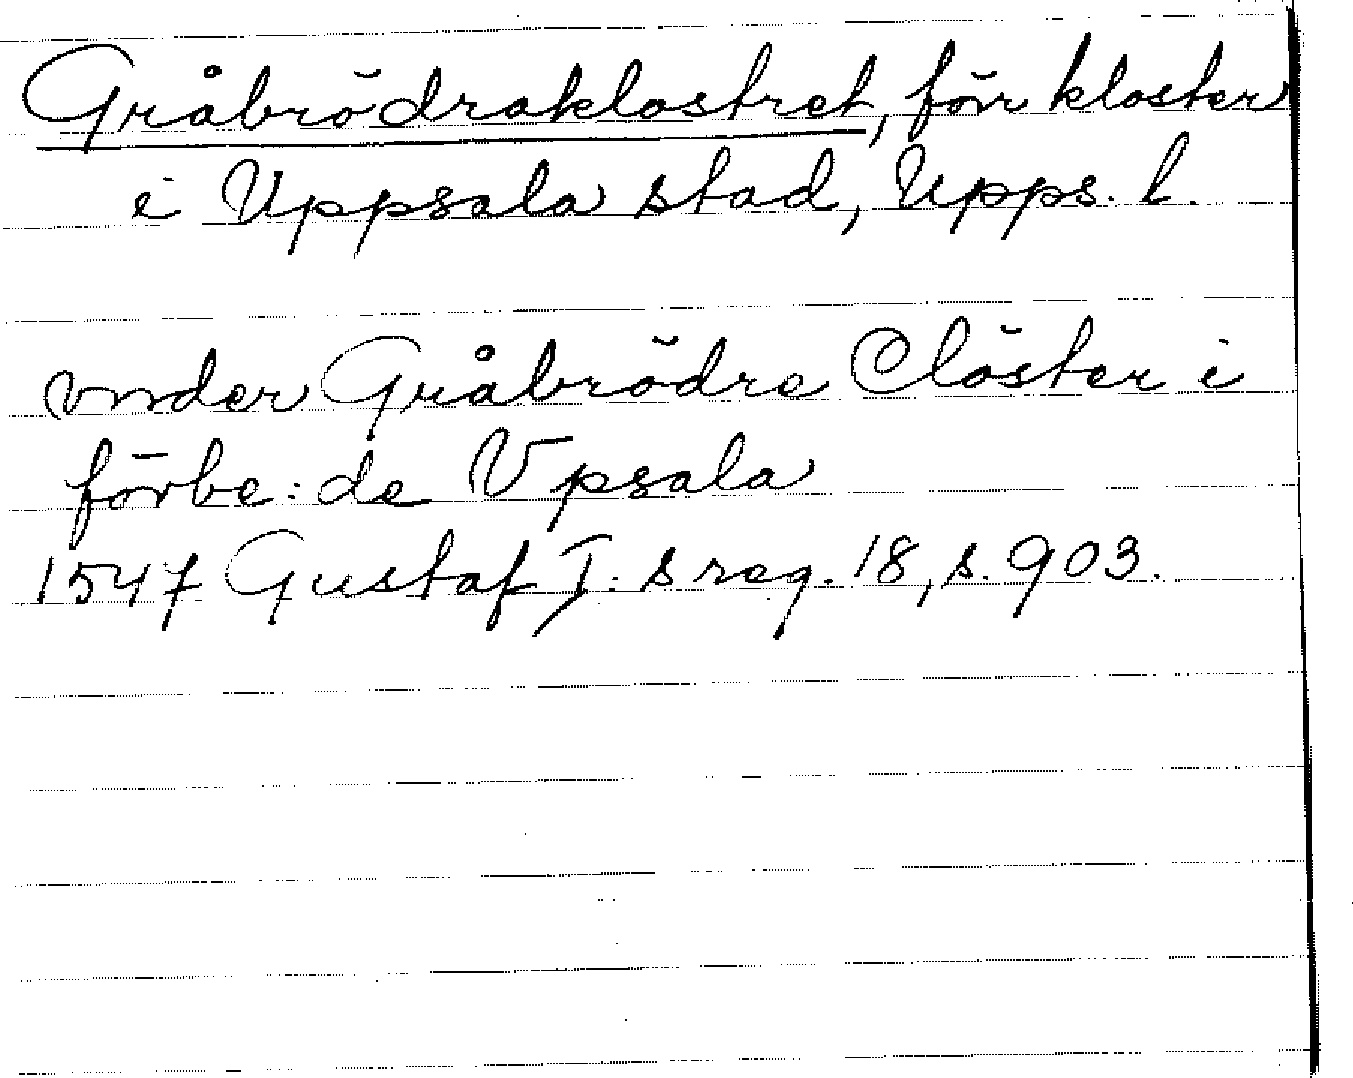 Gråbrödraklostret, förr kloster
i Uppsala stad, Upps. l.
vnder Gråbrödre Clöster i
förbe: de Vpsala
1547 Gustaf I: s reg. 18, s. 903.